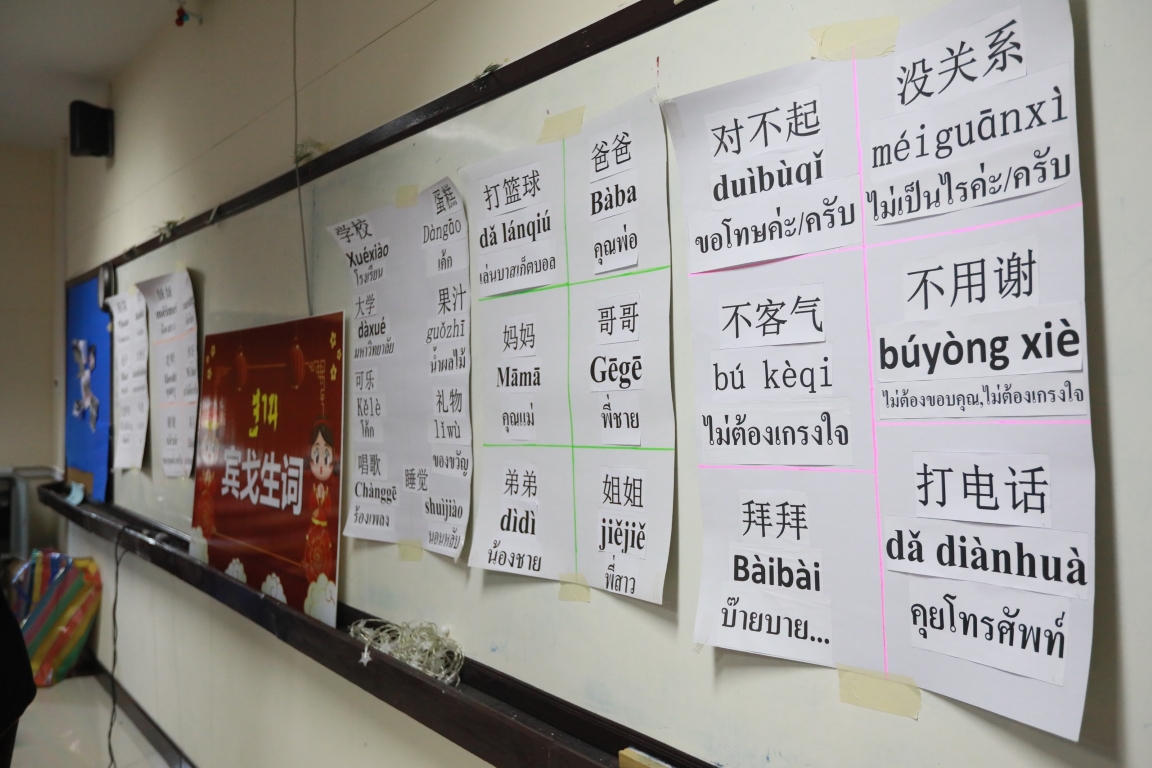 学校
Xuéxiào
โรงเรียน
蛋糕
Dàngāo
เค้ก
大学
dàxué
มหาวิทยาลัย
果汁
guǒzhī
น้ำผลไม้
可乐
Kělè
โค้ก
礼物
lǐwù
ของขวัญ
唱歌
Chànggē
ร้องเพลง
睡觉
shuìjiào
นอนหลับ
ฐาน
宾戈生词
打篮球
dǎ lánqiú
เล่นบาสเก็ตบอล
爸爸
Bàba
คุณพ่อ
妈妈
Māmā
คุณแม่
哥哥
Gēgē
พี่ชาย
弟弟
dìdì
น้องชาย
姐姐
jiějiě
พี่สาว
对不起
duìbùqǐ
ขอโทษค่ะ/ครับ
没关系
méiguānxì
ไม่เป็นไรค่ะ/ครับ
不客气
bú kèqi
ไม่ต้องเกรงใจ
不用谢
búyòng xiè
ไม่ต้องขอบคุณ,ไม่ต้องเกรงใจ
拜拜
Bàibài
บ๊ายบาย...
打电话
dǎ diànhuà
คุยโทรศัพท์